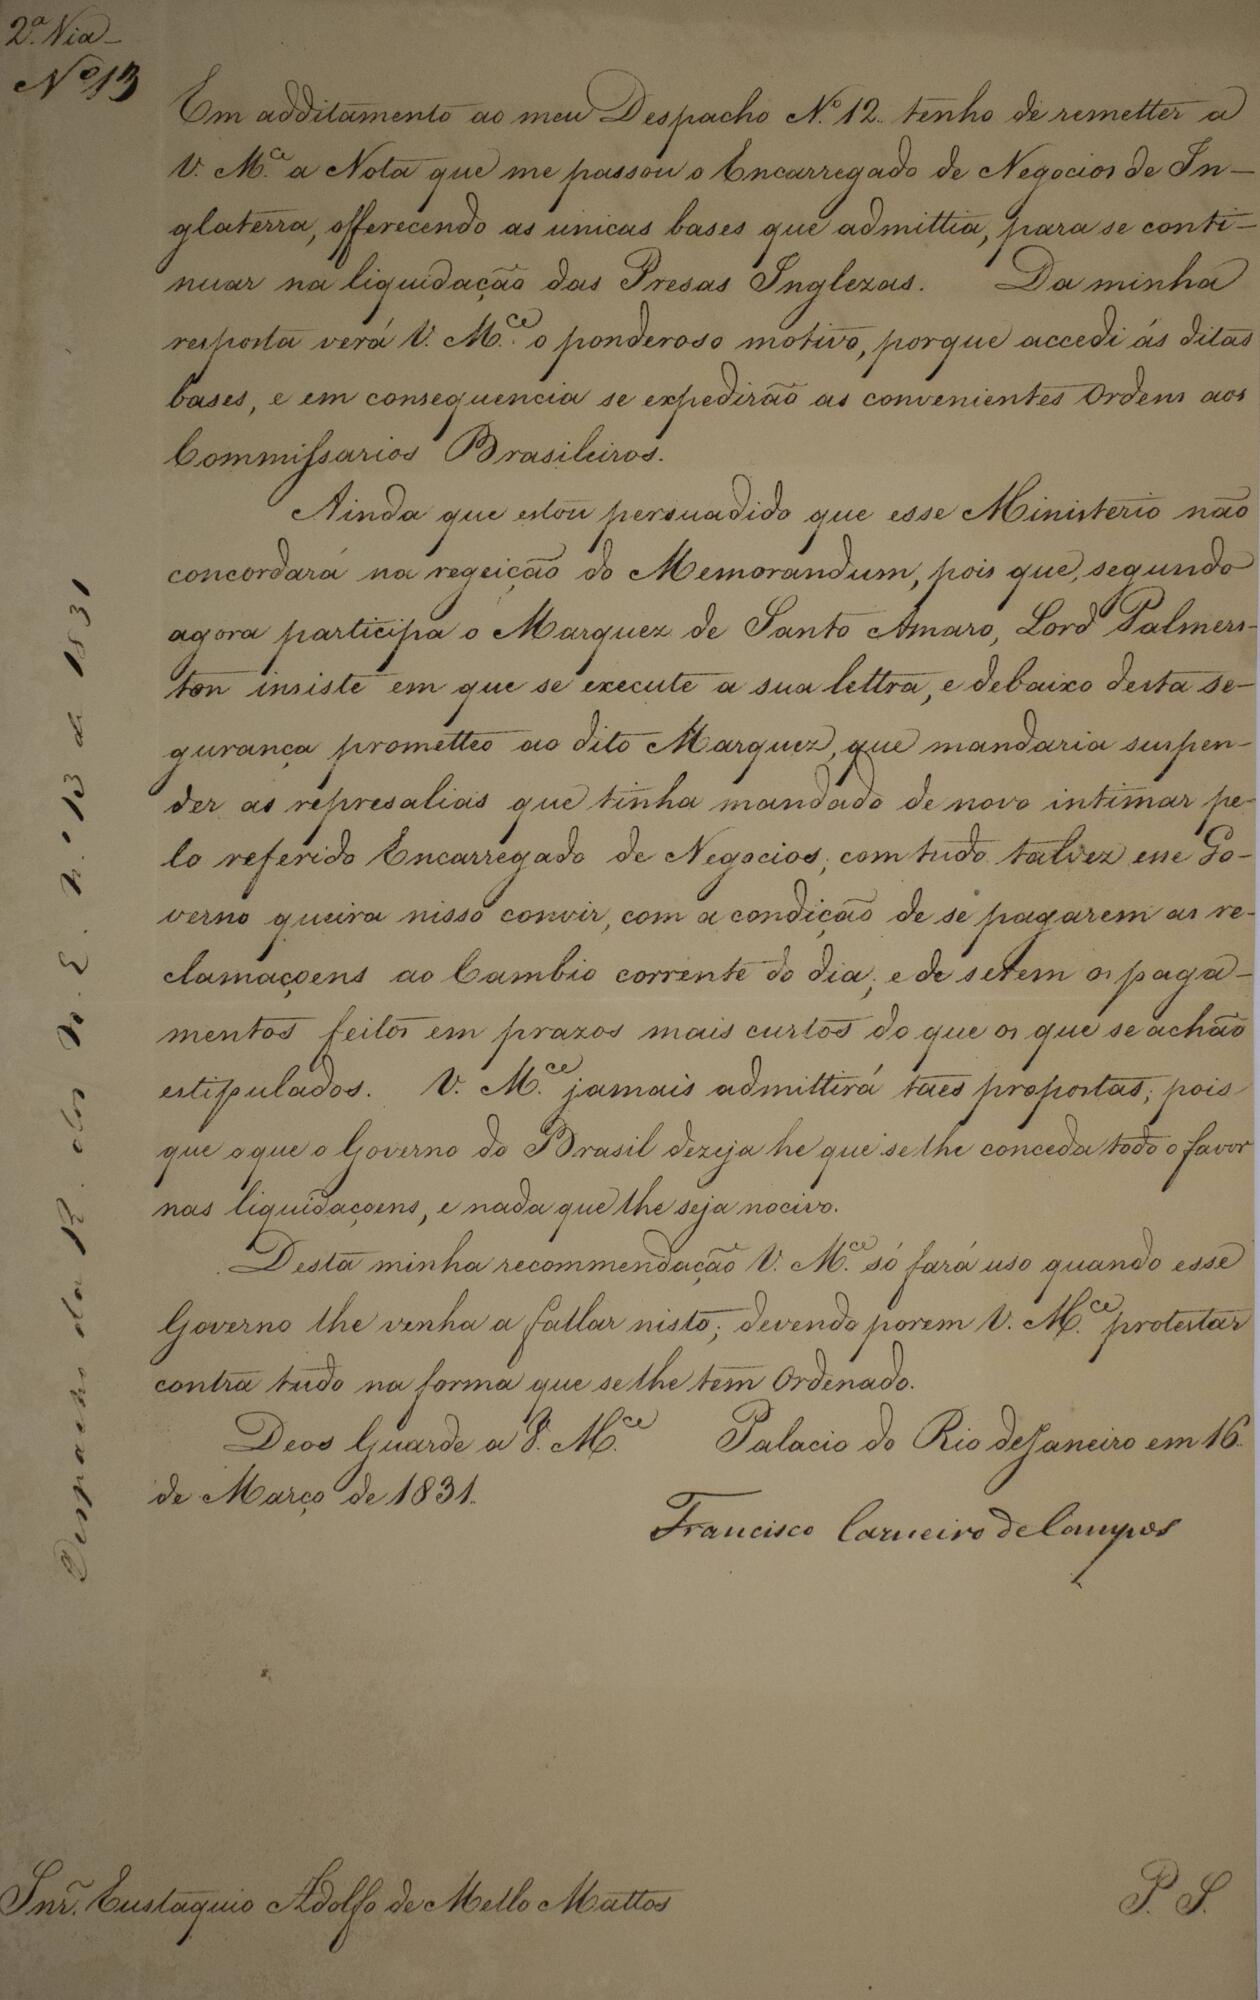 2ª Via
Nº 13
Em additamento ao meu Despacho Nº 12. tenho de remetter a
V. M.ce a Nota que me passou o Encarregado de Negocios de In-
glaterra, offerecendo as unicas bases que admittia, para se conti-
nuar na liquidação das Presas Inglezas. Da minha
resposta verá V. M.ce o ponderoso motivo, porque accedi ás ditas
bases, e em consequencia se expedirão as convenientes Ordens aos
Commissarios Brasileiros.
Ainda que estou persuadido que esse Ministerio não
concordará na regeição do Memorandum, pois que, segundo
agora participa o Marquez de Santo Amaro, Lord Palmers-
ton insiste em que se execute a sua lettra, e debaixo desta se-
gurança prometteo ao dito Marquez, que mandaria suspen-
der as represalias que tinha mandado de novo intimar pe-
lo referido Encarregado de Negocios; com tudo talvez esse Go-
verno queira nisso convir, com a condição de se pagarem as re-
clamaçoens ao Cambio corrente do dia, e de serem os paga-
mentos feitos em prazos mais curtos do que os que se achão
estipulados. V. M.ce jamais admittirá taes propostas; pois
que o que o Governo do Brasil dezeja he que se lhe conceda todo o favor
nas liquidaçoens, e nada que lhe seja nocivo.
Desta minha recommendação V. M.ce só fará uso quando esse
Governo lhe venha a fallar nisto; devendo porem V. M.ce protestar
contra tudo na forma que se lhe tem Ordenado.
Deos Guarde a V. M.ce Palacio do Rio de Janeiro em 16.
de Março de 1831.
Francisco Carneiro de Campos
Snr. Eustaquio Adolfo de Mello Mattos
P. S.
Despacho da R. dos N. E. n.º 13 de 1831